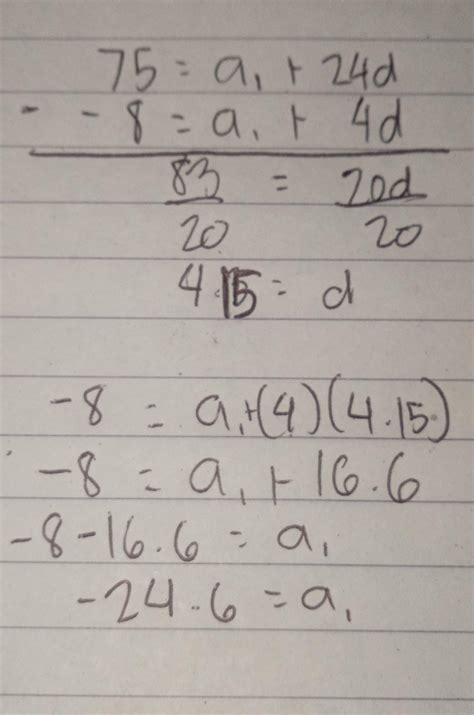 75 = a₁ + 24d
- -8 = a₁ + 4d
83/20 = 20d/20
4.15 = d
-8 = a₁+(4)(4.15)
-8 = a₁ + 16.6
-8-16.6 = a₁
-24.6 = a₁